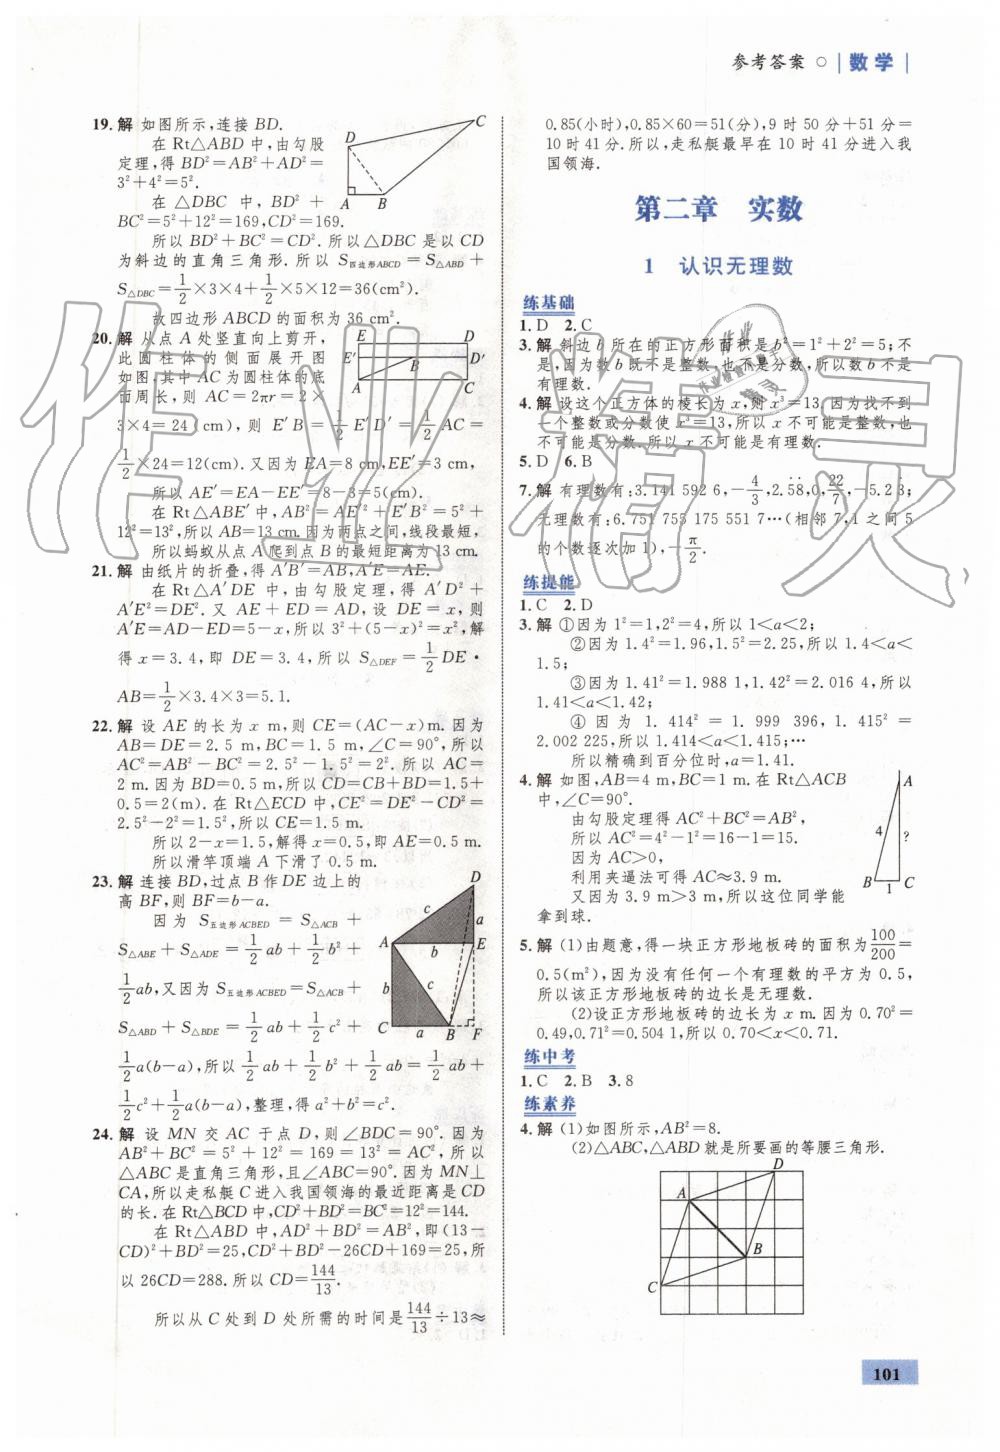 参考答案 ○ | 数学 |
19. 解 如图所示,连接 BD.
在 Rt△ABD 中,由勾股
定理,得 BD²=AB²+AD²=
3²+4²=5².
在 △DBC 中, BD²+
BC²=5²+12²=169,CD²=169.
所以 BD²+BC²=CD². 所以△DBC 是以 CD
为斜边的直角三角形. 所以 S四边形ABCD=S△ABD+
S△DBC=1/2×3×4+1/2×5×12=36(cm²).
故四边形 ABCD 的面积为 36 cm².
20. 解 从点 A 处竖直向上剪开,
此圆柱体的侧面展开图
如图,其中 AC 为圆柱体的底
面周长,则 AC=2πr=2×
3×4=24(cm),则 E′B=1/2E′D′=1/2AC=
1/2×24=12(cm). 又因为 EA=8 cm,EE′=3 cm,
所以 AE′=EA-EE′=8-3=5(cm).
在 Rt△ABE′中,AB²=AE′²+E′B²=5²+
12²=13²,所以 AB=13 cm. 因为两点之间,线段最短,
所以蚂蚁从点 A 爬到点 B 的最短距离为 13 cm.
21. 解 由纸片的折叠,得 A′B′=AB,A′E=AE.
在 Rt△A′DE 中,由勾股定理,得 A′D²+
A′E²=DE². 又 AE+ED=AD,设 DE=x,则
A′E=AD-ED=5-x,所以 3²+(5-x)²=x²,解
得 x=3.4,即 DE=3.4,所以 S△DEF=1/2DE·
AB=1/2×3.4×3=5.1.
22. 解 设 AE 的长为 x m,则 CE=(AC-x)m. 因为
AB=DE=2.5 m,BC=1.5 m,∠C=90°,所以
AC²=AB²-BC²=2.5²-1.5²=2². 所以 AC=
2 m. 因为 BD=0.5 m,所以 CD=CB+BD=1.5+
0.5=2(m). 在 Rt△ECD 中,CE²=DE²-CD²=
2.5²-2²=1.5²,所以 CE=1.5 m.
所以 2-x=1.5,解得 x=0.5,即 AE=0.5 m.
所以滑竿顶端 A 下滑了 0.5 m.
23. 解 连接 BD,过点 B 作 DE 边上的
高 BF,则 BF=b-a.
因为 S五边形ACBED=S△ACB+
S△ABE+S△ADE=1/2ab+1/2b²+
1/2ab,又因为 S五边形ACBED=S△ACB+
S△ABD+S△BDE=1/2ab+1/2c²+
1/2a(b-a),所以 1/2ab+1/2b²+1/2ab=1/2ab+
1/2c²+1/2a(b-a),整理,得 a²+b²=c².
24. 解 设 MN 交 AC 于点 D,则∠BDC=90°. 因为
AB²+BC²=5²+12²=13²=AC²,所以
△ABC 是直角三角形,且∠ABC=90°. 因为 MN⊥
CA,所以走私艇 C 进入我国领海的最近距离是 CD
的长. 在 Rt△BCD 中,CD²+BD²=BC²=12²=144.
在 Rt△ABD 中,AD²+BD²=AB²,即(13-
CD)²+BD²=25,CD²+BD²-26CD+169=25,所
以 26CD=288. 所以 CD=144/13.
所以从 C 处到 D 处所需的时间是144/13÷13≈
0.85(小时),0.85×60=51(分),9 时 50 分+51 分=
10 时 41 分. 所以,走私艇最早在 10 时 41 分进入我
国领海.
第二章 实数
1 认识无理数
练基础
1. D 2. C
3. 解 斜边 b 所在的正方形面积是 b²=1²+2²=5;不
是,因为数 b 既不是整数,也不是分数,所以数 b 不是
有理数.
4. 解 设这个正方体的棱长为 x,则 x³=13. 因为找不到
一个整数或分数使 x³=13,所以 x 不可能是整数,也
不可能是分数. 所以 x 不可能是有理数.
5. D 6. B
7. 解 有理数有:3.141 592 6,-4/3,2.5̇8̇,0,22/7,-5.2 3̇;
无理数有:6.751 755 175 551 7…(相邻 7,1 之间 5
的个数逐次加 1),-π/2.
练提能
1. C 2. D
3. 解 ①因为 1²=1,2²=4,所以 1<a<2;
②因为 1.4²=1.96,1.5²=2.25,所以 1.4<a<
1.5;
③因为 1.41²=1.988 1,1.42²=2.016 4,所以
1.41<a<1.42;
④ 因为 1.414²=1.999 396, 1.415²=
2.002 225,所以 1.414<a<1.415;…
所以精确到百分位时,a=1.41.
4. 解 如图,AB=4 m,BC=1 m. 在 Rt△ACB
中,∠C=90°.
由勾股定理得 AC²+BC²=AB²,
所以 AC²=4²-1²=16-1=15.
因为 AC>0,
利用夹逼法可得 AC≈3.9 m.
又因为 3.9 m>3 m,所以这位同学能
拿到球.
5. 解 (1)由题意,得一块正方形地板砖的面积为100/200=
0.5(m²). 因为没有任何一个有理数的平方为 0.5,
所以该正方形地板砖的边长是无理数.
(2)设正方形地板砖的边长为 x m. 因为 0.70²=
0.49,0.71²=0.504 1,所以 0.70<x<0.71.
练中考
1. C 2. B 3. 8
练素养
4. 解 (1)如图所示,AB²=8.
(2)△ABC,△ABD 就是所要画的等腰三角形.
101